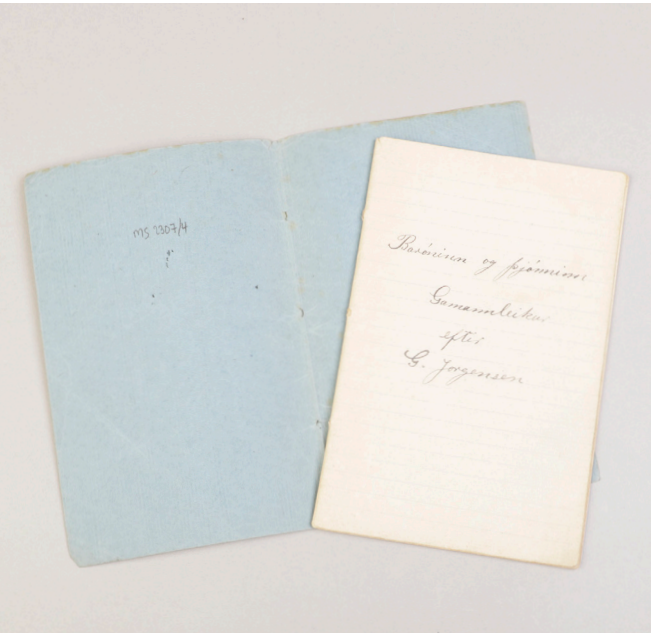 MS 2307/4
Baróninn og þjónninn
Gamannleikur
eftir
G. Jorgensen